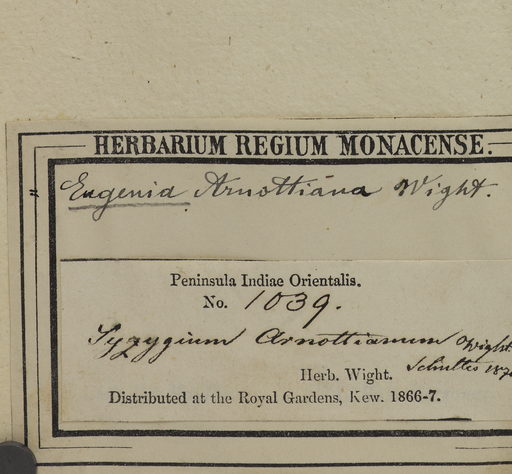 HERBARIUM REGIUM MONACENSE.
Eugenia Arnottiana Wight.
Peninsula Indiae Orientalis.
No. 1039.
Syzygium Arnottianum Wight.
Herb. Wight.
Distributed at the Royal Gardens, Kew. 1866-7.